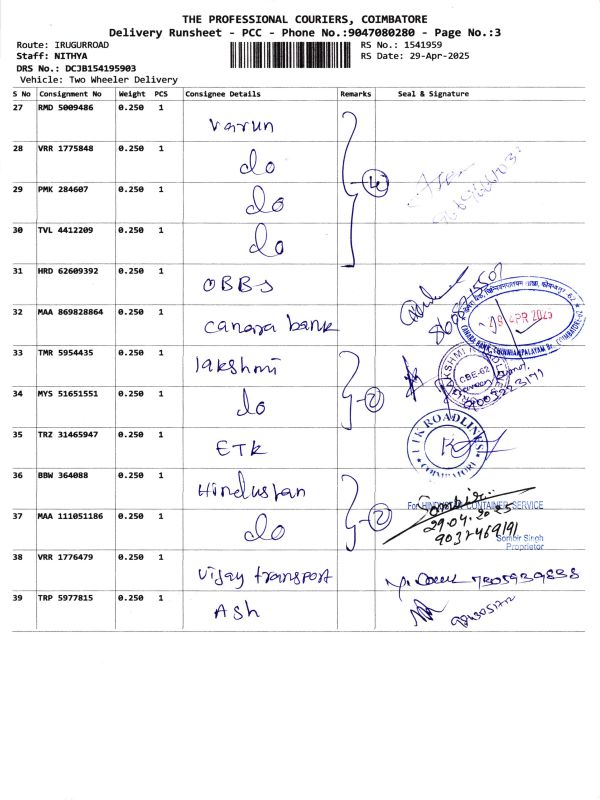 THE PROFESSIONAL COURIERS, COIMBATORE
Delivery Runsheet - PCC - Phone No.:9047080280 - Page No.:3
Route: IRUGURROAD
Staff: NITHYA
DRS No.: DCJB154195903
Vehicle: Two Wheeler Delivery
RS No.: 1541959
RS Date: 29-Apr-2025
S No Consignment No Weight PCS Consignee Details Remarks Seal & Signature
27 RMD 5009486 0.250 1
Varun
28 VRR 1775848 0.250 1
do
4
29 PMK 284607 0.250 1
do
30 TVL 4412209 0.250 1
do
31 HRD 62609392 0.250 1
OBBs
32 MAA 869828864 0.250 1
canara bank
APR 2025
33 TMR 5954435 0.250 1
lakshmi
CBE-62
34 MYS 51651551 0.250 1
do
2
35 TRZ 31465947 0.250 1
ETK
UTK ROADLINES
COIMBATORE
36 BBW 364088 0.250 1
Hindustan
For HINDUSTAN CONTAINER SERVICE
37 MAA 111051186 0.250 1
do
2
29.04.2025
Sombir Singh
Proprietor
38 VRR 1776479 0.250 1
Vijay transport
39 TRP 5977815 0.250 1
Ash